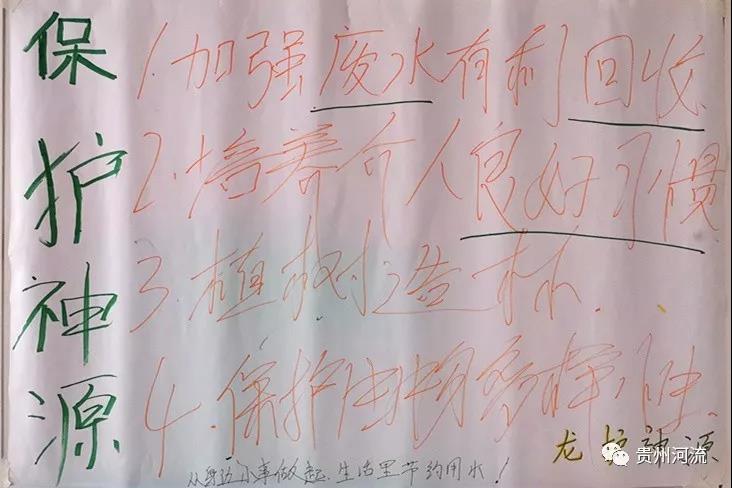 保护神源
1.加强废水有利回收
2.培养个人良好习惯
3.植树造林.
4.保护生物多样性.
从身边小事做起,生活里节约用水!
龙护神源
贵州河流